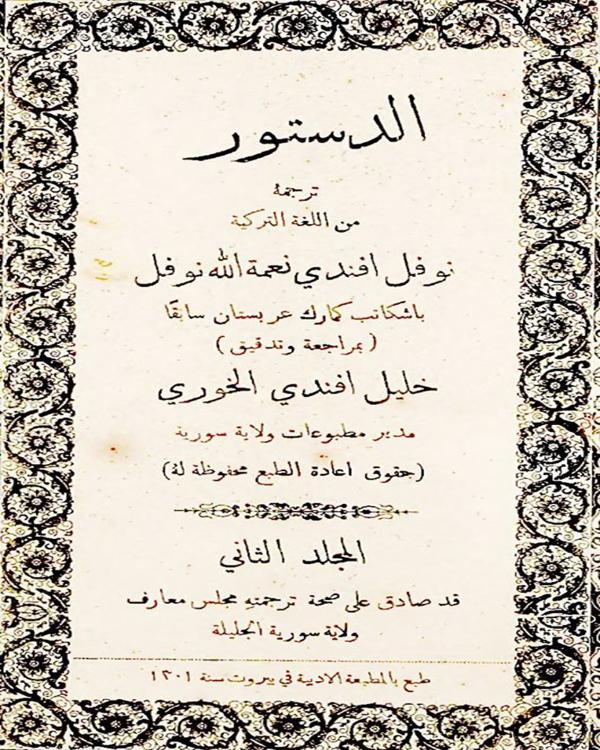 الدستور
ترجمة
من اللغة التركية
نوفل افندي نعمة الله نوفل
باشكاتب كمارك عربستان سابقًا
(بمراجعة وتدقيق)
خليل افندي الخوري
مدير مطبوعات ولاية سورية
(حقوق اعادة الطبع محفوظة لهُ)
المجلد الثاني
قد صادق على صحة ترجمتهِ مجلس معارف
ولاية سورية الجليلة
طبع بالمطبعة الادبية في بيروت سنة ١٣٠١